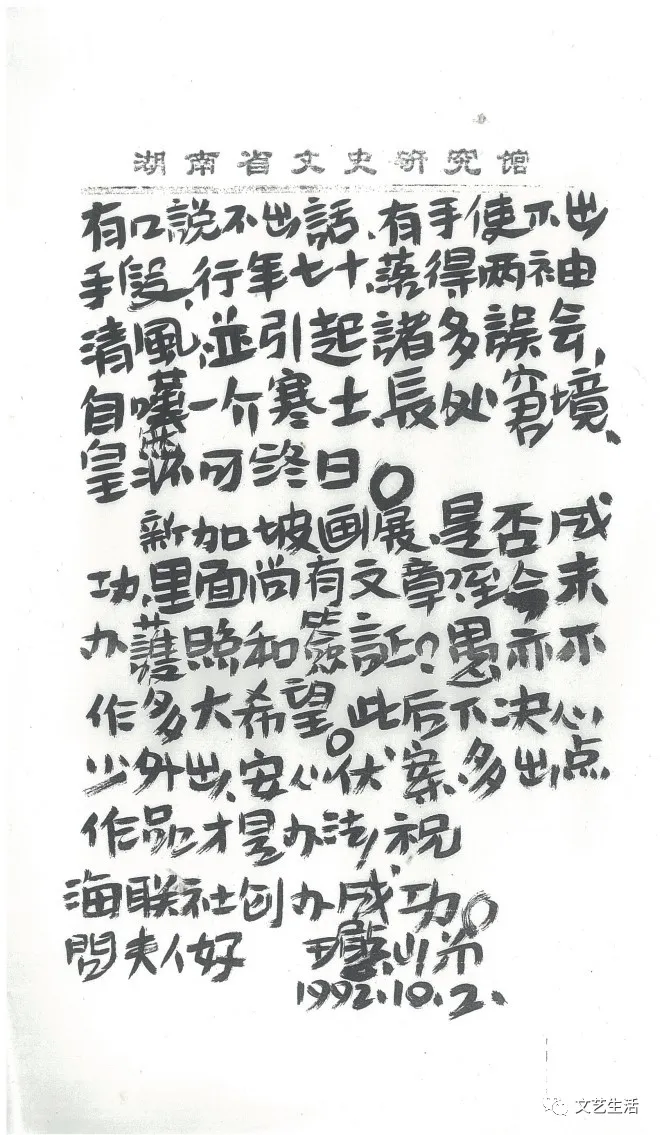 湖南省文史研究馆
有口説不出話、有手使不出
手段、行年七十、落得两袖
清風、並引起諸多誤会、
自嘆一个寒士、長处窘境、
皇恐不可終日。
新加坡画展、是否成
功、里面尚有文章？至今未
办護照和簽証？愚亦不
作多大希望。此后下决心
少外出、安心伏案、多出点
作品才是办法、祝
海联社创办成功。
問夫人好
1992.10.2.
文艺生活